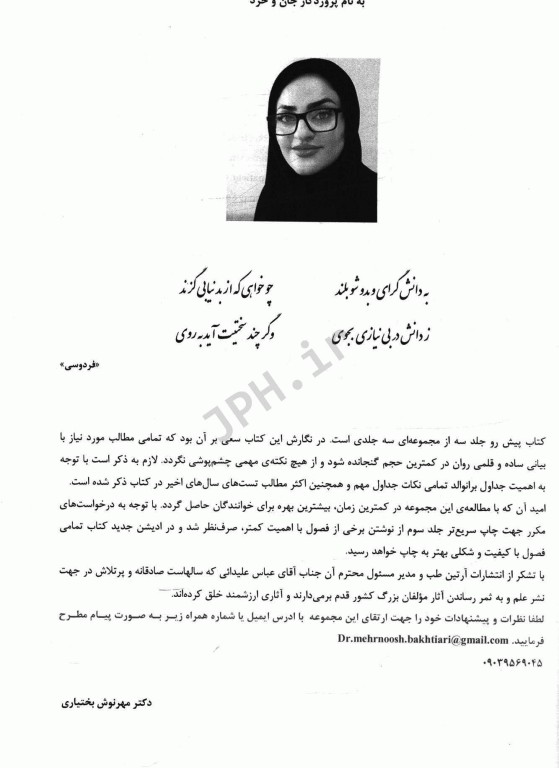 به نام پروردگار جان و خرد
به دانش گرای و بدو شو بلند
چو خواهی که از بد نیابی گزند
ز دانش در بی نیازی بجوی
وگر چند سختیت آید به روی
«فردوسی»
JPH.ir
کتاب پیش رو جلد سه از مجموعه‌ای سه جلدی است. در نگارش این کتاب سعی بر آن بود که تمامی مطالب مورد نیاز با
بیانی ساده و قلمی روان در کمترین حجم گنجانده شود و از هیچ نکته‌ی مهمی چشم‌پوشی نگردد. لازم به ذکر است با توجه
به اهمیت جداول برانوالد تمامی نکات جداول مهم و همچنین اکثر مطالب تست‌های سال‌های اخیر در کتاب ذکر شده است.
امید آن که با مطالعه‌ی این مجموعه در کمترین زمان، بیشترین بهره برای خوانندگان حاصل گردد. با توجه به درخواست‌های
مکرر جهت چاپ سریع‌تر جلد سوم از نوشتن برخی از فصول با اهمیت کمتر، صرف‌نظر شد و در ادیشن جدید کتاب تمامی
فصول با کیفیت و شکلی بهتر به چاپ خواهد رسید.
با تشکر از انتشارات آرتین طب و مدیر مسئول محترم آن جناب آقای عباس علیدائی که سالهاست صادقانه و پرتلاش در جهت
نشر علم و به ثمر رساندن آثار مؤلفان بزرگ کشور قدم برمی‌دارند و آثاری ارزشمند خلق کرده‌اند.
لطفا نظرات و پیشنهادات خود را جهت ارتقای این مجموعه با ادرس ایمیل یا شماره همراه زیر به صورت پیام مطرح
فرمایید. Dr.mehrnoosh.bakhtiari@gmail.com
۰۹۰۳۹۵۶۹۰۴۵
دکتر مهرنوش بختیاری